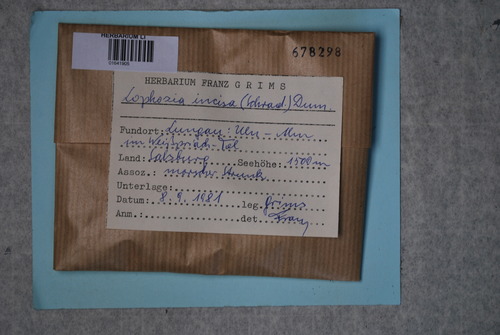 HERBARIUM LI
678298
HERBARIUM FRANZ GRIMS
Lophozia incisa (Schrad.) Dum.
Fundort: Lungau: Uln-Alm
im Weißpriach-Tal
Land: Salzburg Seehöhe: 1500 m
Assoz.: morscher Strunk
Unterlage:
Datum: 8.9.1981 leg. Grims
Anm.: det. Franz